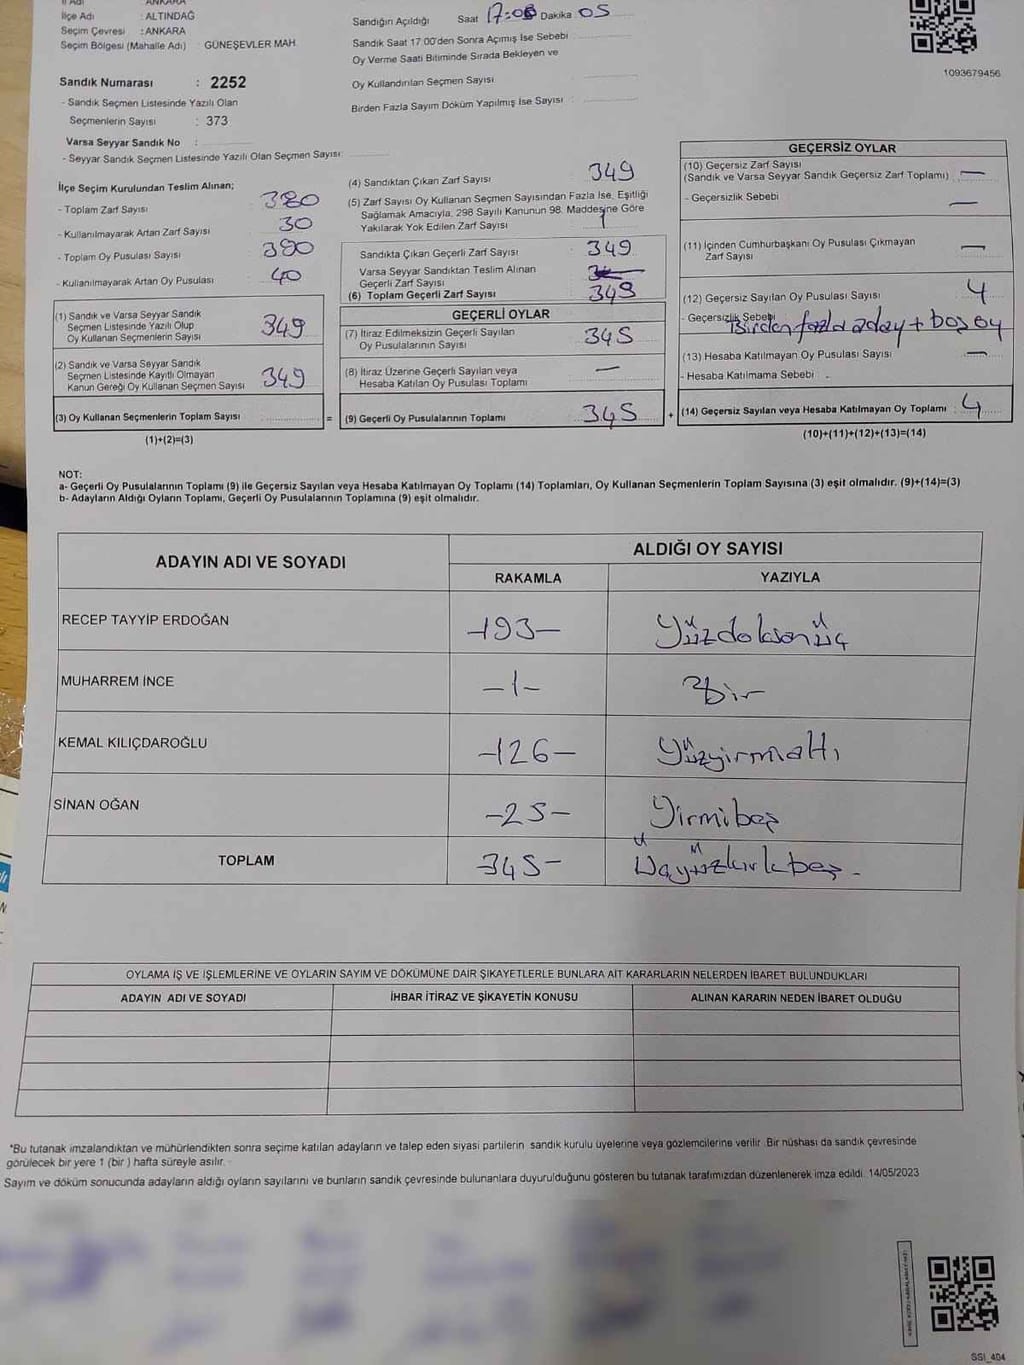 İlçe Adı : ALTINDAĞ
Seçim Çevresi : ANKARA
Seçim Bölgesi (Mahalle Adı) : GÜNEŞEVLER MAH.
Sandık Numarası : 2252
- Sandık Seçmen Listesinde Yazılı Olan
Seçmenlerin Sayısı : 373
Varsa Seyyar Sandık No :
- Seyyar Sandık Seçmen Listesinde Yazılı Olan Seçmen Sayısı:
Sandığın Açıldığı Saat 17:05 Dakika 05
Sandık Saat 17:00'den Sonra Açımış İse Sebebi
Oy Verme Saati Bitiminde Sırada Bekleyen ve
Oy Kullandırılan Seçmen Sayısı
Birden Fazla Sayım Döküm Yapılmış İse Sayısı :
1093679456
İlçe Seçim Kurulundan Teslim Alınan;
- Toplam Zarf Sayısı 380
- Kullanılmayarak Artan Zarf Sayısı 30
- Toplam Oy Pusulası Sayısı 390
- Kullanılmayarak Artan Oy Pusulası 40
(1) Sandık ve Varsa Seyyar Sandık
Seçmen Listesinde Yazılı Olup
Oy Kullanan Seçmenlerin Sayısı 349
(2) Sandık ve Varsa Seyyar Sandık
Seçmen Listesinde Kayıtlı Olmayan
Kanun Gereği Oy Kullanan Seçmen Sayısı 349
(3) Oy Kullanan Seçmenlerin Toplam Sayısı =
(1)+(2)=(3)
(4) Sandıktan Çıkan Zarf Sayısı 349
(5) Zarf Sayısı Oy Kullanan Seçmen Sayısından Fazla İse, Eşitliği
Sağlamak Amacıyla, 298 Sayılı Kanunun 98. Maddesine Göre
Yakılarak Yok Edilen Zarf Sayısı
Sandıkta Çıkan Geçerli Zarf Sayısı 349
Varsa Seyyar Sandıktan Teslim Alınan
Geçerli Zarf Sayısı
(6) Toplam Geçerli Zarf Sayısı 349
GEÇERLİ OYLAR
(7) İtiraz Edilmeksizin Geçerli Sayılan
Oy Pusulalarının Sayısı 345
(8) İtiraz Üzerine Geçerli Sayılan veya
Hesaba Katılan Oy Pusulası Toplamı —
(9) Geçerli Oy Pusulalarının Toplamı 345 +
GEÇERSİZ OYLAR
(10) Geçersiz Zarf Sayısı
(Sandık ve Varsa Seyyar Sandık Geçersiz Zarf Toplamı) —
- Geçersizlik Sebebi —
(11) İçinden Cumhurbaşkanı Oy Pusulası Çıkmayan
Zarf Sayısı —
(12) Geçersiz Sayılan Oy Pusulası Sayısı 4
- Geçersizlik Sebebi Birden fazla aday + boş oy
(13) Hesaba Katılmayan Oy Pusulası Sayısı —
- Hesaba Katılmama Sebebi .
(14) Geçersiz Sayılan veya Hesaba Katılmayan Oy Toplamı 4
(10)+(11)+(12)+(13)=(14)
NOT:
a- Geçerli Oy Pusulalarının Toplamı (9) ile Geçersiz Sayılan veya Hesaba Katılmayan Oy Toplamı (14) Toplamları, Oy Kullanan Seçmenlerin Toplam Sayısına (3) eşit olmalıdır. (9)+(14)=(3)
b- Adayların Aldığı Oyların Toplamı, Geçerli Oy Pusulalarının Toplamına (9) eşit olmalıdır.
ADAYIN ADI VE SOYADI
ALDIĞI OY SAYISI
RAKAMLA YAZIYLA
RECEP TAYYİP ERDOĞAN -193- Yüzdoksanüç
MUHARREM İNCE -1- Bir
KEMAL KILIÇDAROĞLU -126- Yüzyirmialtı
SİNAN OĞAN -25- Yirmibeş
TOPLAM 345- Üçyüzkırkbeş -
OYLAMA İŞ VE İŞLEMLERİNE VE OYLARIN SAYIM VE DÖKÜMÜNE DAİR ŞİKAYETLERLE BUNLARA AİT KARARLARIN NELERDEN İBARET BULUNDUKLARI
ADAYIN ADI VE SOYADI İHBAR İTİRAZ VE ŞİKAYETİN KONUSU ALINAN KARARIN NEDEN İBARET OLDUĞU
*Bu tutanak imzalandıktan ve mühürlendikten sonra seçime katılan adayların ve talep eden siyasi partilerin sandık kurulu üyelerine veya gözlemcilerine verilir. Bir nüshası da sandık çevresinde
görülecek bir yere 1 (bir ) hafta süreyle asılır.
Sayım ve döküm sonucunda adayların aldığı oyların sayılarını ve bunların sandık çevresinde bulunanlara duyurulduğunu gösteren bu tutanak tarafımızdan düzenlenerek imza edildi. 14/05/2023
SSI_404